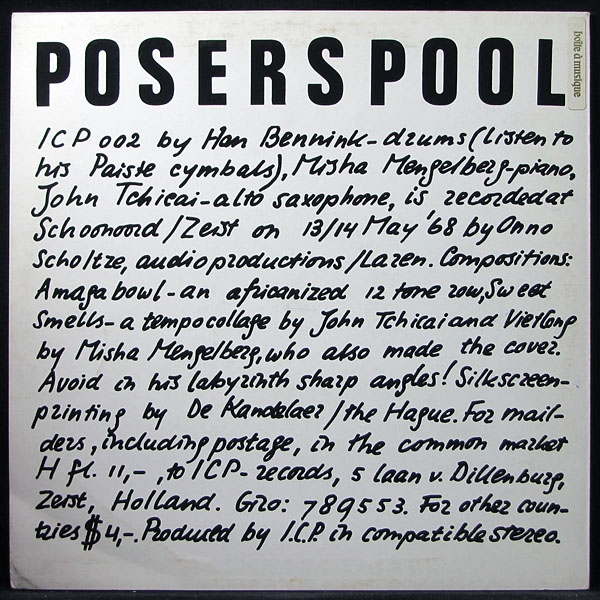 POSERSPOOL
boîte à musique
ICP 002 by Han Bennink-drums (listen to
his Paiste cymbals), Misha Mengelberg-piano,
John Tchicai-alto saxophone, is recorded at
Schoonoord/Zeist on 13/14 May '68 by Onno
Scholtze, audioproductions/Laren. Compositions:
Amagabowl-an africanized 12 tone row, Sweet
Smells-a tempocollage by John Tchicai and Vietcong
by Misha Mengelberg, who also made the cover.
Avoid in his labyrinth sharp angles! Silkscreen-
printing by De Kandelaer/the Hague. For mail-
ders, including postage, in the common market
H fl. 11,-, to ICP-records, 5 laan v. Dillenburg,
Zeist, Holland. Giro: 789553. For other coun-
tries $4,-. Produced by I.C.P. in compatible stereo.